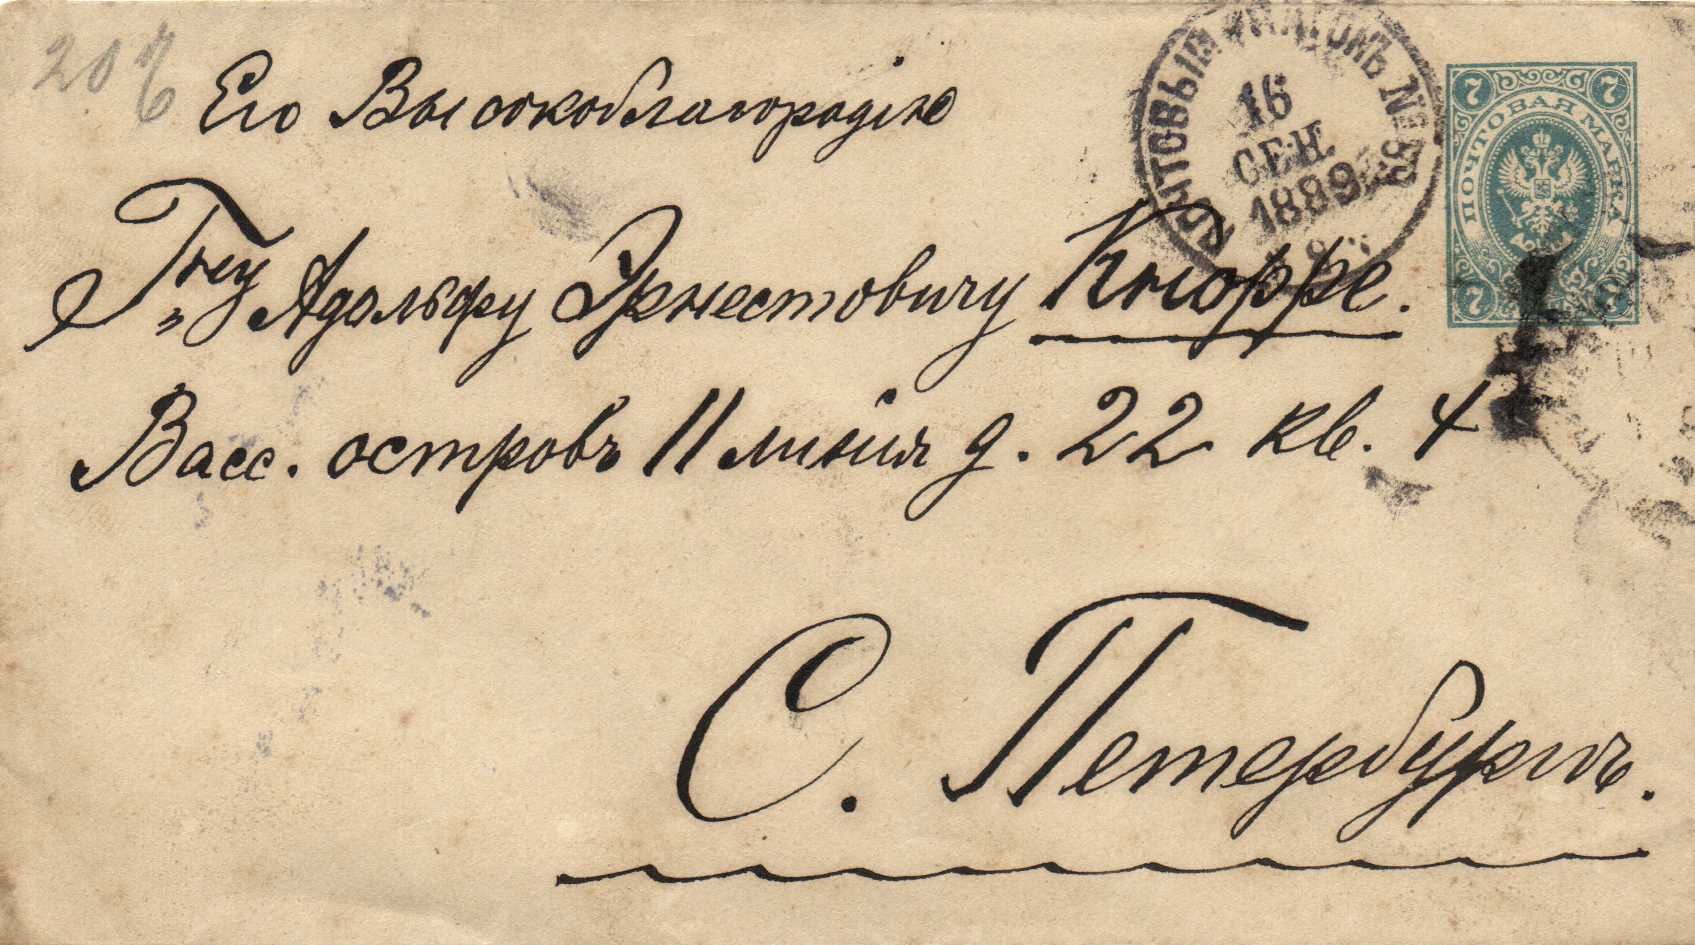 20
Его Высокоблагородію
Гну Адольфу Эрнестовичу Кнорре.
Васс. островъ 11 линия д. 22 кв. 4
С. Петербургъ.
ПОЧТОВЫЙ ВАГОНЪ №
16
СЕН.
1889
7 7
ПОЧТОВАЯ МАРКА
7